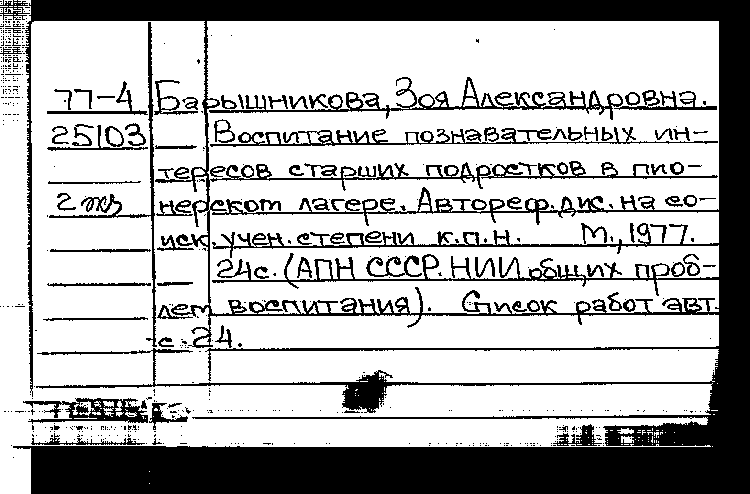 77-4 Барышникова, Зоя Александровна.
25103 Воспитание познавательных ин-
тересов старших подростков в пио-
2 экз нерском лагере. Автореф. дис. на со-
иск. учен. степени к.п.н. М., 1977.
24с. (АПН СССР. НИИ общих проб-
лем воспитания). Список работ авт.
с. 24.